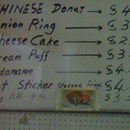 CHINESE DONUT → $4
nion Ring → $3
heese Cake → $2
ream Puff → $
damame → $4
t Sticker Steamed Fried $4